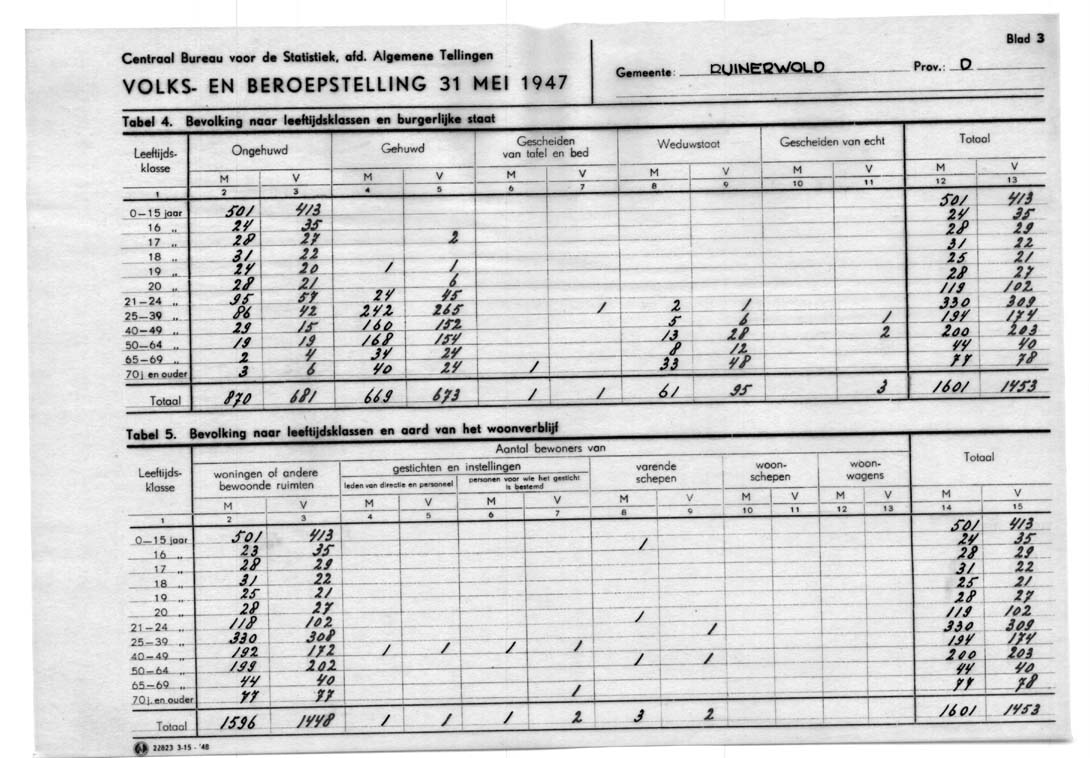 Blad 3
Centraal Bureau voor de Statistiek, afd. Algemene Tellingen
VOLKS- EN BEROEPSTELLING 31 MEI 1947
Gemeente: RUINERWOLD Prov.: D
Tabel 4. Bevolking naar leeftijdsklassen en burgerlijke staat
Leeftijds-klasse Ongehuwd Gehuwd Gescheiden van tafel en bed Weduwstaat Gescheiden van echt Totaal
M V M V M V M V M V M V
1 2 3 4 5 6 7 8 9 10 11 12 13
0—15 jaar 501 413 501 413
16 „ 24 35 24 35
17 „ 28 27 2 28 29
18 „ 31 22 31 22
19 „ 24 20 1 1 25 21
20 „ 28 21 6 28 27
21—24 „ 95 57 24 45 119 102
25—39 „ 86 42 242 265 1 2 1 330 309
40—49 „ 29 15 160 152 5 6 1 194 174
50—64 „ 19 19 168 154 13 28 2 200 203
65—69 „ 2 4 34 24 8 12 44 40
70 j. en ouder 3 6 40 24 1 33 48 77 78
Totaal 870 681 669 673 1 1 61 95 3 1601 1453
Tabel 5. Bevolking naar leeftijdsklassen en aard van het woonverblijf
Aantal bewoners van
Leeftijds-klasse woningen of andere bewoonde ruimten gestichten en instellingen varende schepen woon-schepen woon-wagens Totaal
leden van directie en personeel personen voor wie het gesticht is bestemd
M V M V M V M V M V M V M V
1 2 3 4 5 6 7 8 9 10 11 12 13 14 15
0—15 jaar 501 413 501 413
16 „ 23 35 1 24 35
17 „ 28 29 28 29
18 „ 31 22 31 22
19 „ 25 21 25 21
20 „ 28 27 28 27
21—24 „ 118 102 1 119 102
25—39 „ 330 308 1 330 309
40—49 „ 192 172 1 1 1 1 194 174
50—64 „ 199 202 1 1 200 203
65—69 „ 44 40 44 40
70 j. en ouder 77 77 1 77 78
Totaal 1596 1448 1 1 1 2 3 2 1601 1453
22823 3-15 - '48